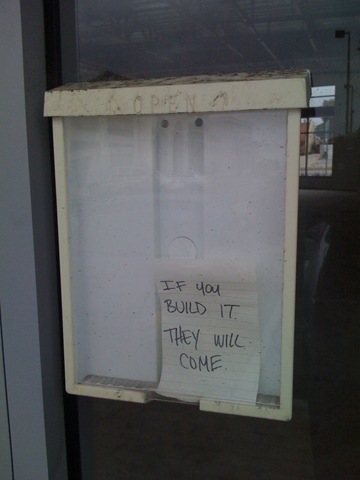 OPEN
IF YOU
BUILD IT.
THEY WILL
COME.